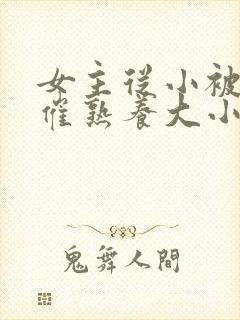 女主從小被
催熟養大小
鬼舞人間